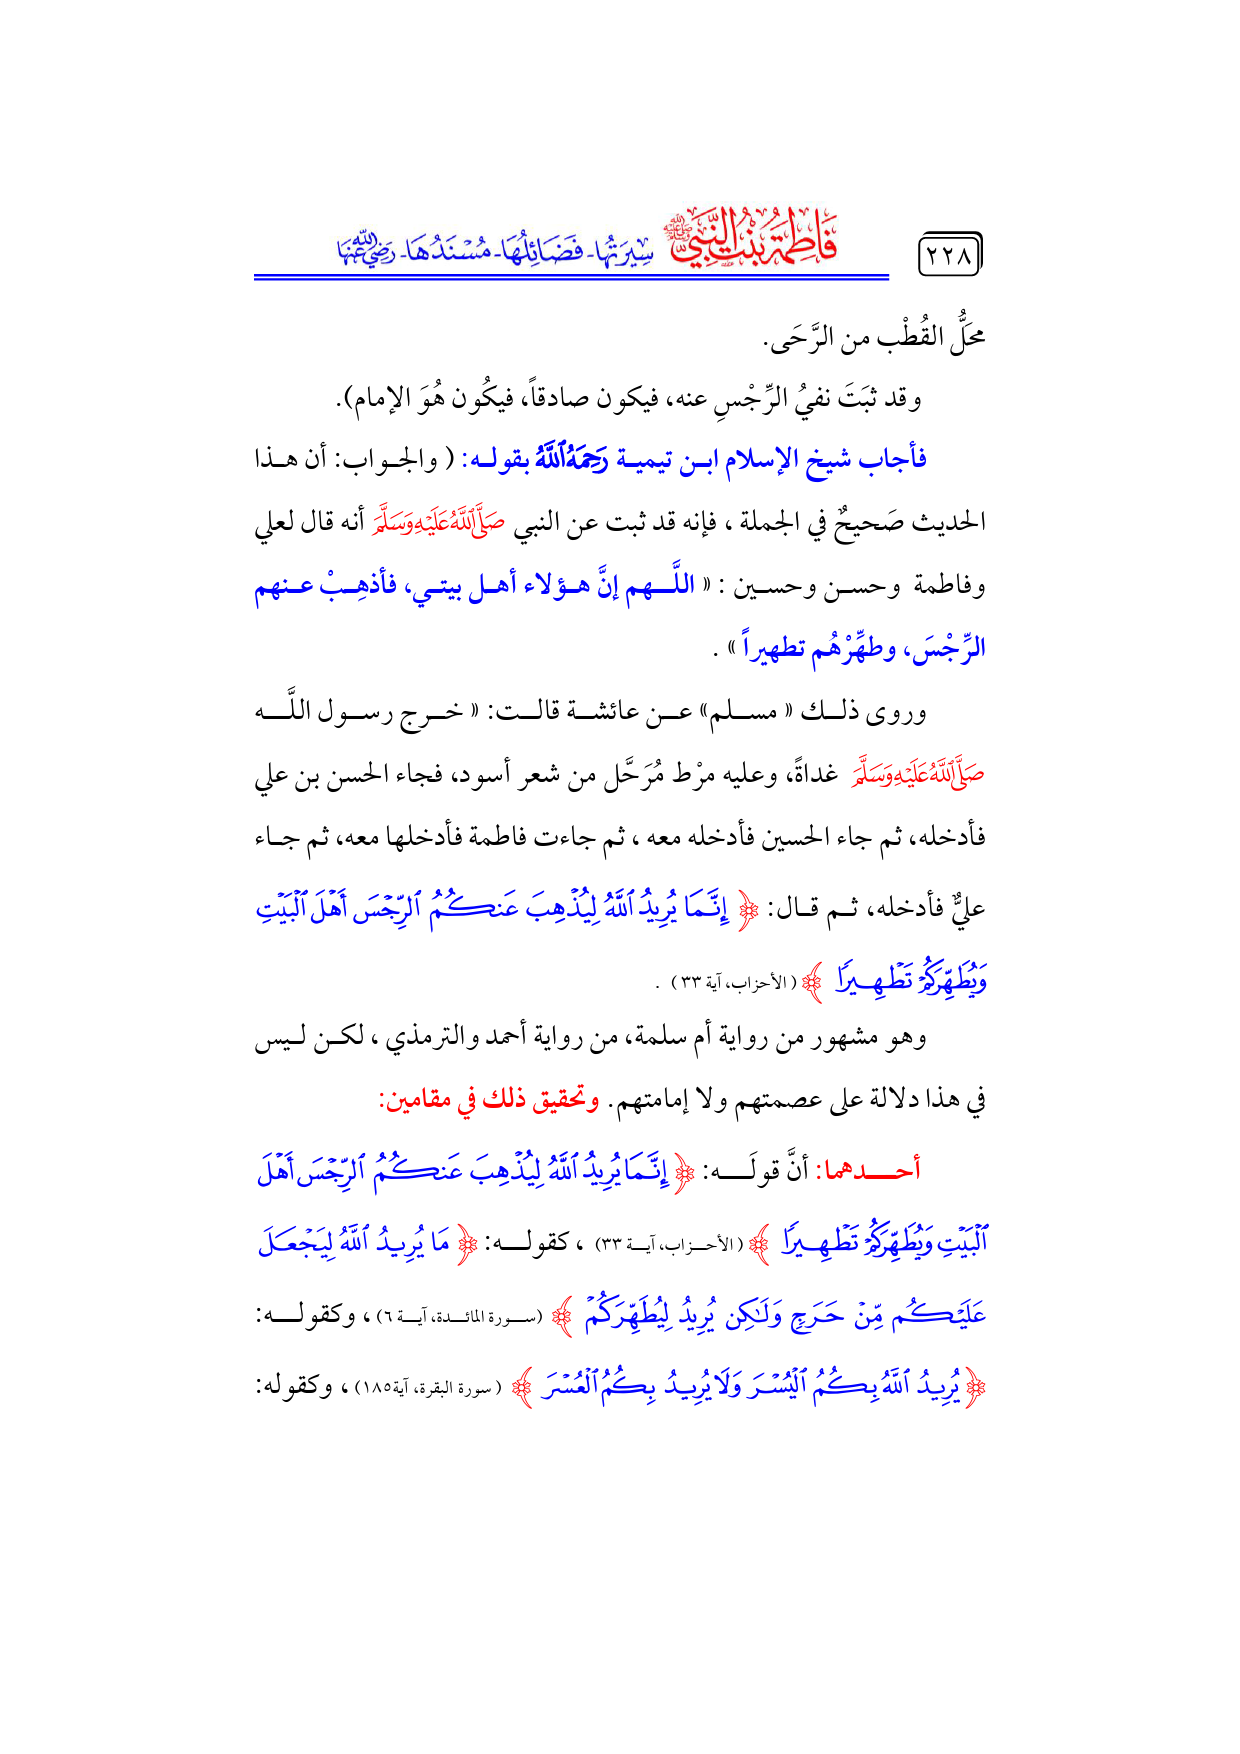 ٢٢٨
فَاطِمَةُ بِنْتُ النَّبِيِّ ﷺ سِيْرَتُها- فَضَائِلُهَا- مُسْنَدُهَا- رَضِيَ اللهُ عَنْهَا
محَلُّ القُطْب من الرَّحَى.
وقد ثبَتَ نفيُ الرِّجْسِ عنه، فيكون صادقاً، فيكُون هُوَ الإمام).
فأجاب شيخ الإسلام ابـن تيميـة رَحِمَهُ ٱللَّهُ بقولـه: ( والجـواب: أن هـذا
الحديث صَحيحٌ في الجملة ، فإنه قد ثبت عن النبي صَلَّى ٱللَّهُ عَلَيْهِ وَسَلَّمَ أنه قال لعلي
وفاطمة وحسـن وحسـين : « اللَّـهم إنَّ هـؤلاء أهـل بيتـي، فأذهِـبْ عـنهم
الرِّجْسَ، وطهِّرْهُم تطهيراً » .
وروى ذلـك « مسـلم» عـن عائشـة قالـت: « خـرج رسـول اللَّـه
صَلَّى ٱللَّهُ عَلَيْهِ وَسَلَّمَ غداةً، وعليه مرْط مُرَحَّل من شعر أسود، فجاء الحسن بن علي
فأدخله، ثم جاء الحسين فأدخله معه ، ثم جاءت فاطمة فأدخلها معه، ثم جـاء
عليٌّ فأدخله، ثـم قـال: ﴿ إِنَّمَا يُرِيدُ ٱللَّهُ لِيُذْهِبَ عَنكُمُ ٱلرِّجْسَ أَهْلَ ٱلْبَيْتِ
وَيُطَهِّرَكُمْ تَطْهِيرًا ﴾ ( الأحزاب، آية ٣٣ ) .
وهو مشهور من رواية أم سلمة، من رواية أحمد والترمذي ، لكـن لـيس
في هذا دلالة على عصمتهم ولا إمامتهم. وتحقيق ذلك في مقامين:
أحـدهما: أنَّ قولَـه: ﴿ إِنَّمَا يُرِيدُ ٱللَّهُ لِيُذْهِبَ عَنكُمُ ٱلرِّجْسَ أَهْلَ
ٱلْبَيْتِ وَيُطَهِّرَكُمْ تَطْهِيرًا ﴾ ( الأحـزاب، آيـة ٣٣) ، كقولـه: ﴿ مَا يُرِيدُ ٱللَّهُ لِيَجْعَلَ
عَلَيْكُم مِّنْ حَرَجٍ وَلَـٰكِن يُرِيدُ لِيُطَهِّرَكُمْ ﴾ (سـورة المائـدة، آيـة ٦) ، وكقولـه:
﴿ يُرِيدُ ٱللَّهُ بِكُمُ ٱلْيُسْرَ وَلَا يُرِيدُ بِكُمُ ٱلْعُسْرَ ﴾ ( سورة البقرة، آية١٨٥) ، وكقوله: